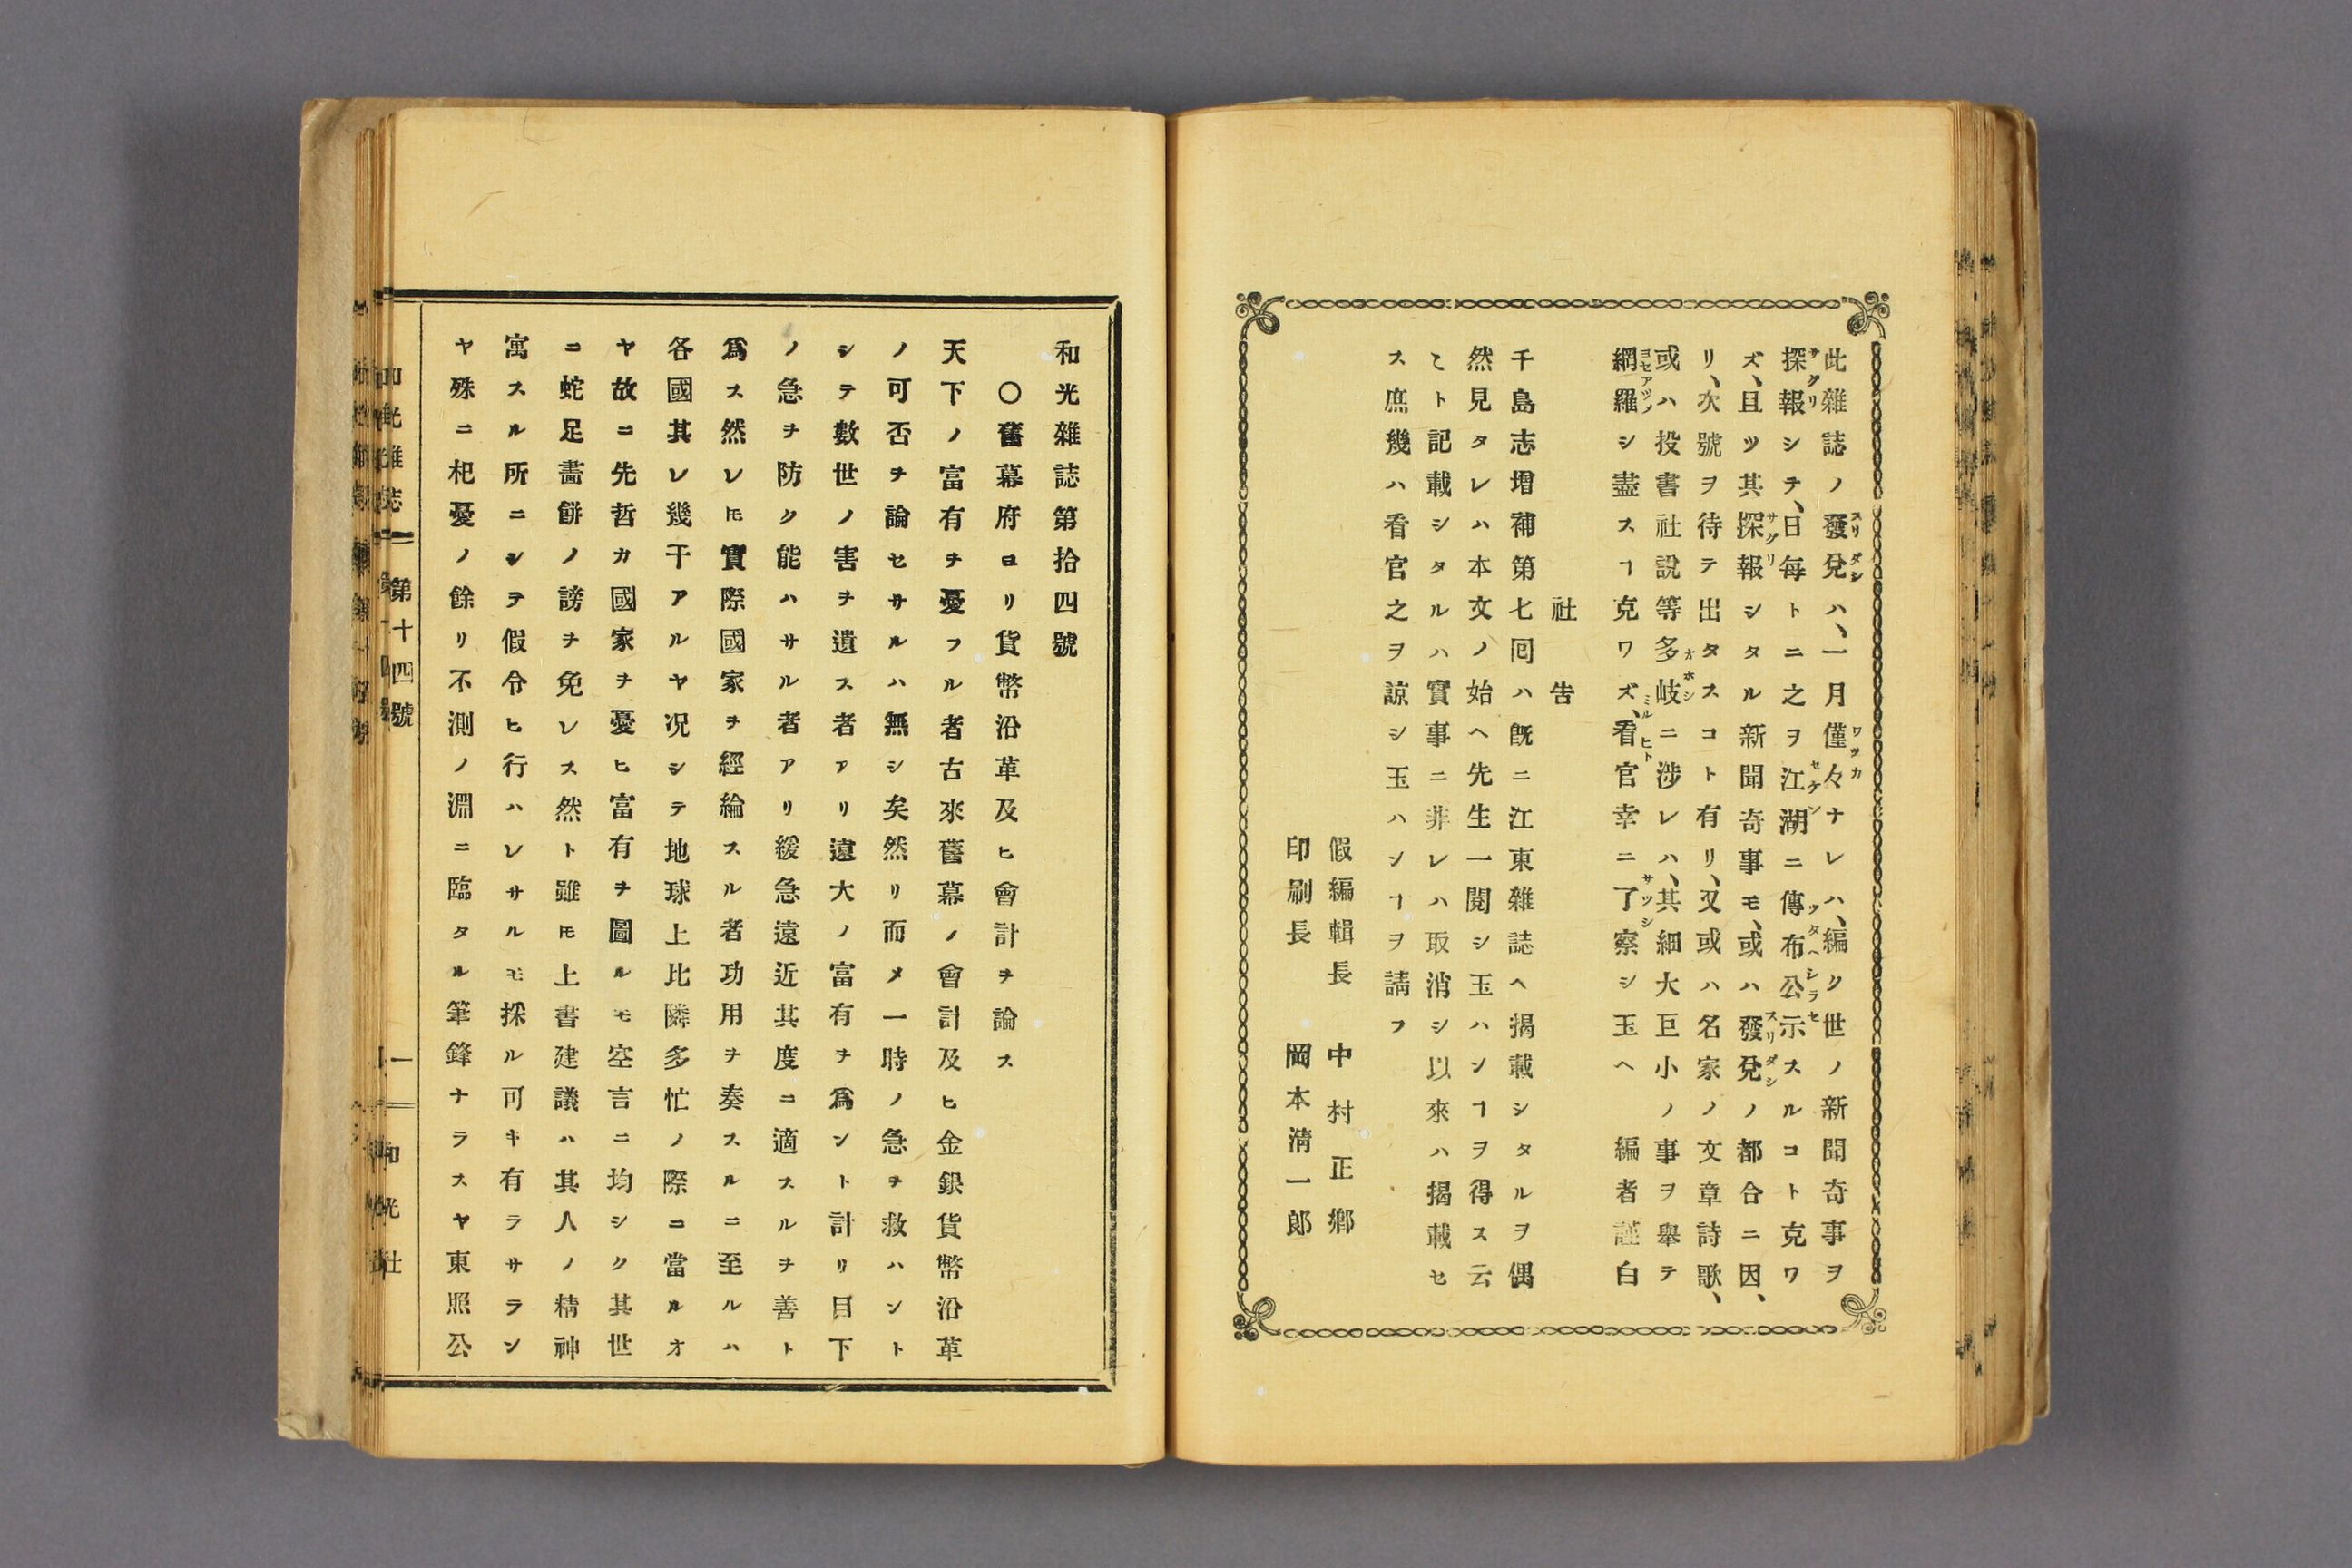 此雜誌ノ發兌ハ、一月僅々ナレハ、編ク世ノ新聞奇事ヲ
探報シテ、日每トニ之ヲ江湖ニ傳布公示スルコト克ワ
ズ、且ツ其探報シタル新聞奇事モ、或ハ發兌ノ都合ニ因、
リ、次號ヲ待テ出タスコト有リ、又或ハ名家ノ文章詩歌、
或ハ投書社說等多岐ニ涉レハ、其細大巨小ノ事ヲ舉テ
網羅シ盡スヿ克ワズ、看官幸ニ了察シ玉ヘ　編者謹白
社告
千島志增補第七回ハ旣ニ江東雜誌ヘ揭載シタルヲ偶
然見タレハ本文ノ始ヘ先生一閱シ玉ハンヿヲ得ス云
〻ト記載シタルハ實事ニ非レハ取消シ以來ハ揭載セ
ス庶幾ハ看官之ヲ諒シ玉ハンヿヲ請フ
假編輯長　中村正鄕
印刷長　岡本淸一郞
和光雜誌第拾四號
〇舊幕府ヨリ貨幣沿革及ヒ會計ヲ論ス
天下ノ富有ヲ憂フル者古來舊幕ノ會計及ヒ金銀貨幣沿革
ノ可否ヲ論セサルハ無シ矣然リ而メ一時ノ急ヲ救ハント
シテ數世ノ害ヲ遺ス者アリ遠大ノ富有ヲ爲ント計リ目下
ノ急ヲ防ク能ハサル者アリ緩急遠近其度ニ適スルヲ善ト
爲ス然レ𪜈實際國家ヲ經綸スル者功用ヲ奏スルニ至ルハ
各國其レ幾干アルヤ况シテ地球上比隣多忙ノ際ニ當ルオ
ヤ故ニ先哲カ國家ヲ憂ヒ富有ヲ圖ルモ空言ニ均シク其世
ニ蛇足畵餠ノ謗ヲ免レス然ト雖𪜈上書建議ハ其人ノ精神
寓スル所ニシテ假令ヒ行ハレサルモ採ル可キ有ラサラン
ヤ殊ニ杞憂ノ餘リ不測ノ淵ニ臨タル筆鋒ナラスヤ東照公
和光雜誌　第十四號　一　和光社